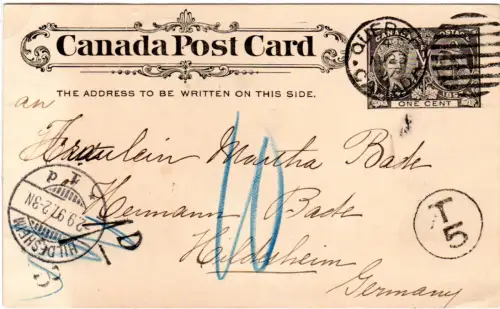 Canada Post Card
CANADA POSTAGE
ONE CENT
QUEBEC
CANADA
THE ADDRESS TO BE WRITTEN ON THIS SIDE.
an
Fräulein Martha Bade
Hermann Bade
Hildesheim
Germany
HILDESHEIM
2.9.97.2-3N
10
T
5